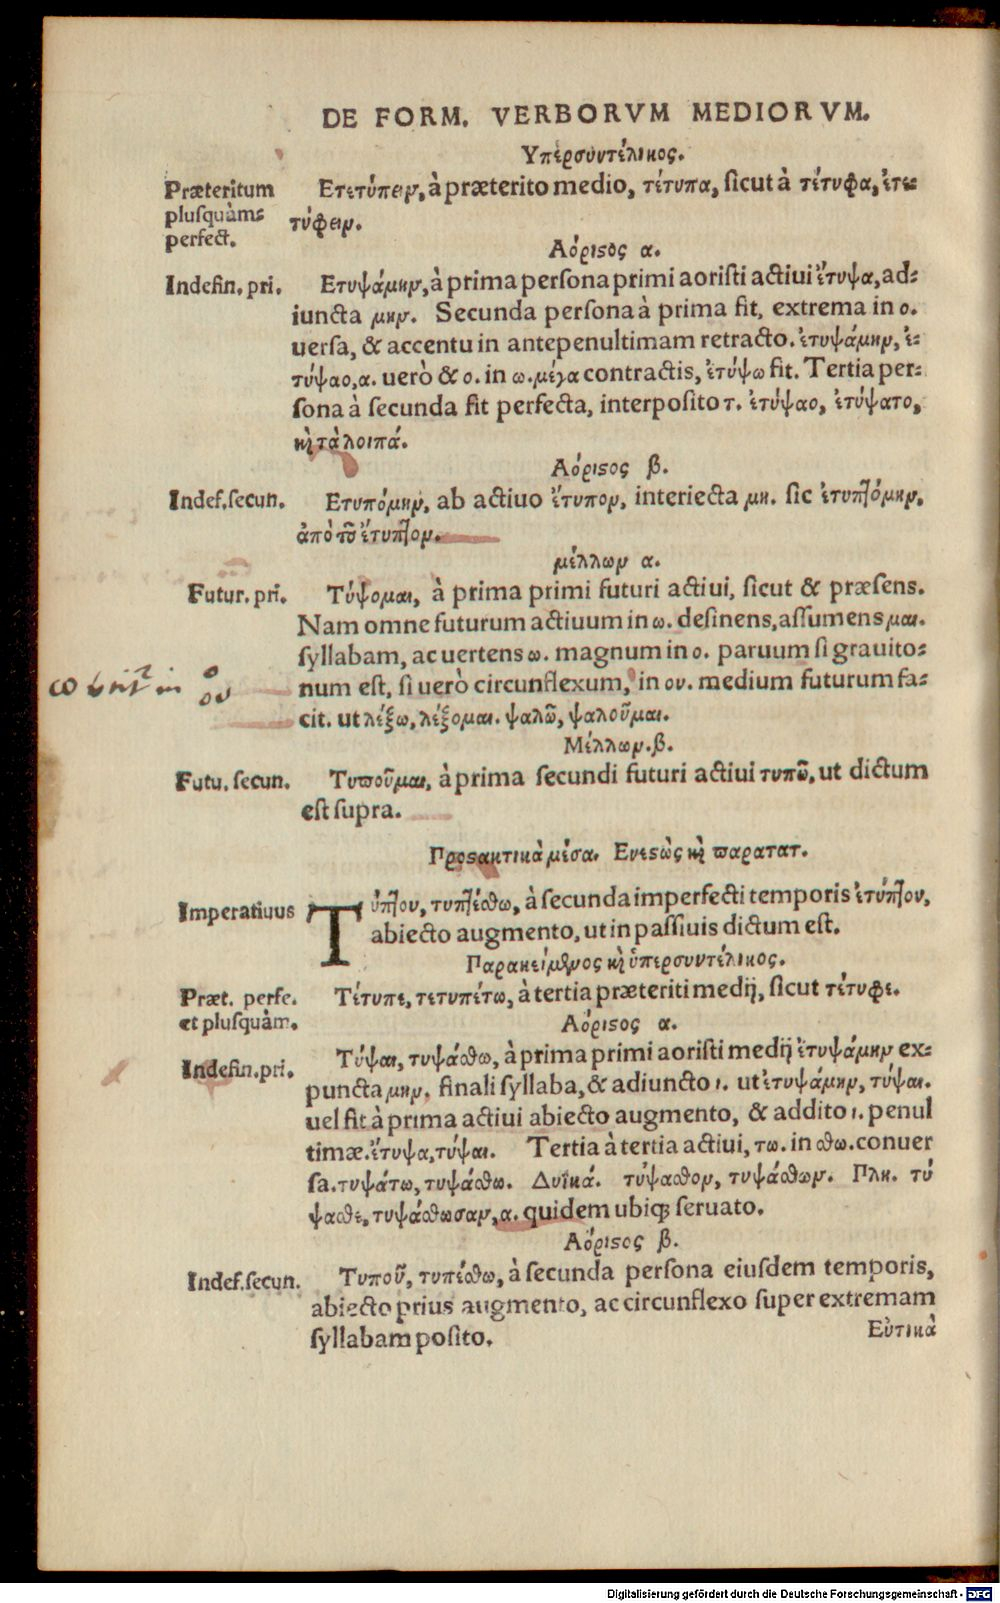 DE FORM. VERBORVM MEDIORVM.
Υπερσυντέλικος.
Præteritum
plusquàm=
perfect.
Ετετύπειν, à præterito medio, τέτυπα, sicut à τέτυφα, ἐτε=
τύφειν.
Αόριςος α.
Indefin. pri.
Ετυψάμην, à prima persona primi aoristi actiui ἔτυψα, ad=
iuncta μην. Secunda persona à prima fit, extrema in ο.
uersa, & accentu in antepenultimam retracto. ἐτυψάμην, ἐ=
τύψαο, α. uerò & ο. in ω. μέγα contractis, ἐτύψω fit. Tertia per=
sona à secunda fit perfecta, interposito τ. ἐτύψαο, ἐτύψατο,
κὴ τὰ λοιπά.
Αόριςος β.
Indef. secun.
Ετυπόμην, ab actiuo ἔτυπον, interiecta μη. sic ἐτυπτόμην,
ἀπὸ τοῦ ἔτυπτον.
μέλλων α.
Futur. pri.
Τύψομαι, à prima primi futuri actiui, sicut & præsens.
Nam omne futurum actiuum in ω. desinens, assumens μαι.
syllabam, ac uertens ω. magnum in ο. paruum si grauito=
num est, si uerò circunflexum, in ου. medium futurum fa=
cit. ut λέξω, λέξομαι. ψαλῶ, ψαλοῦμαι.
ω in ο
ου
Μέλλων. β.
Futu. secun.
Τυποῦμαι, à prima secundi futuri actiui τυπῶ, ut dictum
est supra.
Προςακτικὰ μέσα. Ενεςὼς κὴ παρατατ.
Imperatiuus
Τύπτου, τυπτέσθω, à secunda imperfecti temporis ἐτύπτου,
abiecto augmento, ut in passiuis dictum est.
Παρακείμενος κὴ ὑπερσυντέλικος.
Præt. perfe.
et plusquàm.
Τέτυπε, τετυπέτω, à tertia præteriti medij, sicut τέτυφε.
Αόριςος α.
Indefin. pri.
Τύψαι, τυψάσθω, à prima primi aoristi medij ἐτυψάμην ex=
puncta μην. finali syllaba, & adiuncto ι. ut ἐτυψάμην, τύψαι.
uel fit à prima actiui abiecto augmento, & addito ι. penul
timæ. ἔτυψα, τύψαι. Tertia à tertia actiui, τω. in σθω. conuer
sa. τυψάτω, τυψάσθω. Δυϊκά. τύψασθον, τυψάσθων. Πλη. τύ
ψασθε, τυψάσθωσαν, α. quidem ubiq; seruato.
Αόριςος β.
Indef. secun.
Τυποῦ, τυπέσθω, à secunda persona eiusdem temporis,
abiecto prius augmento, ac circunflexo super extremam
syllabam posito.
Εὐτικὰ
Digitalisierung gefördert durch die Deutsche Forschungsgemeinschaft - DFG